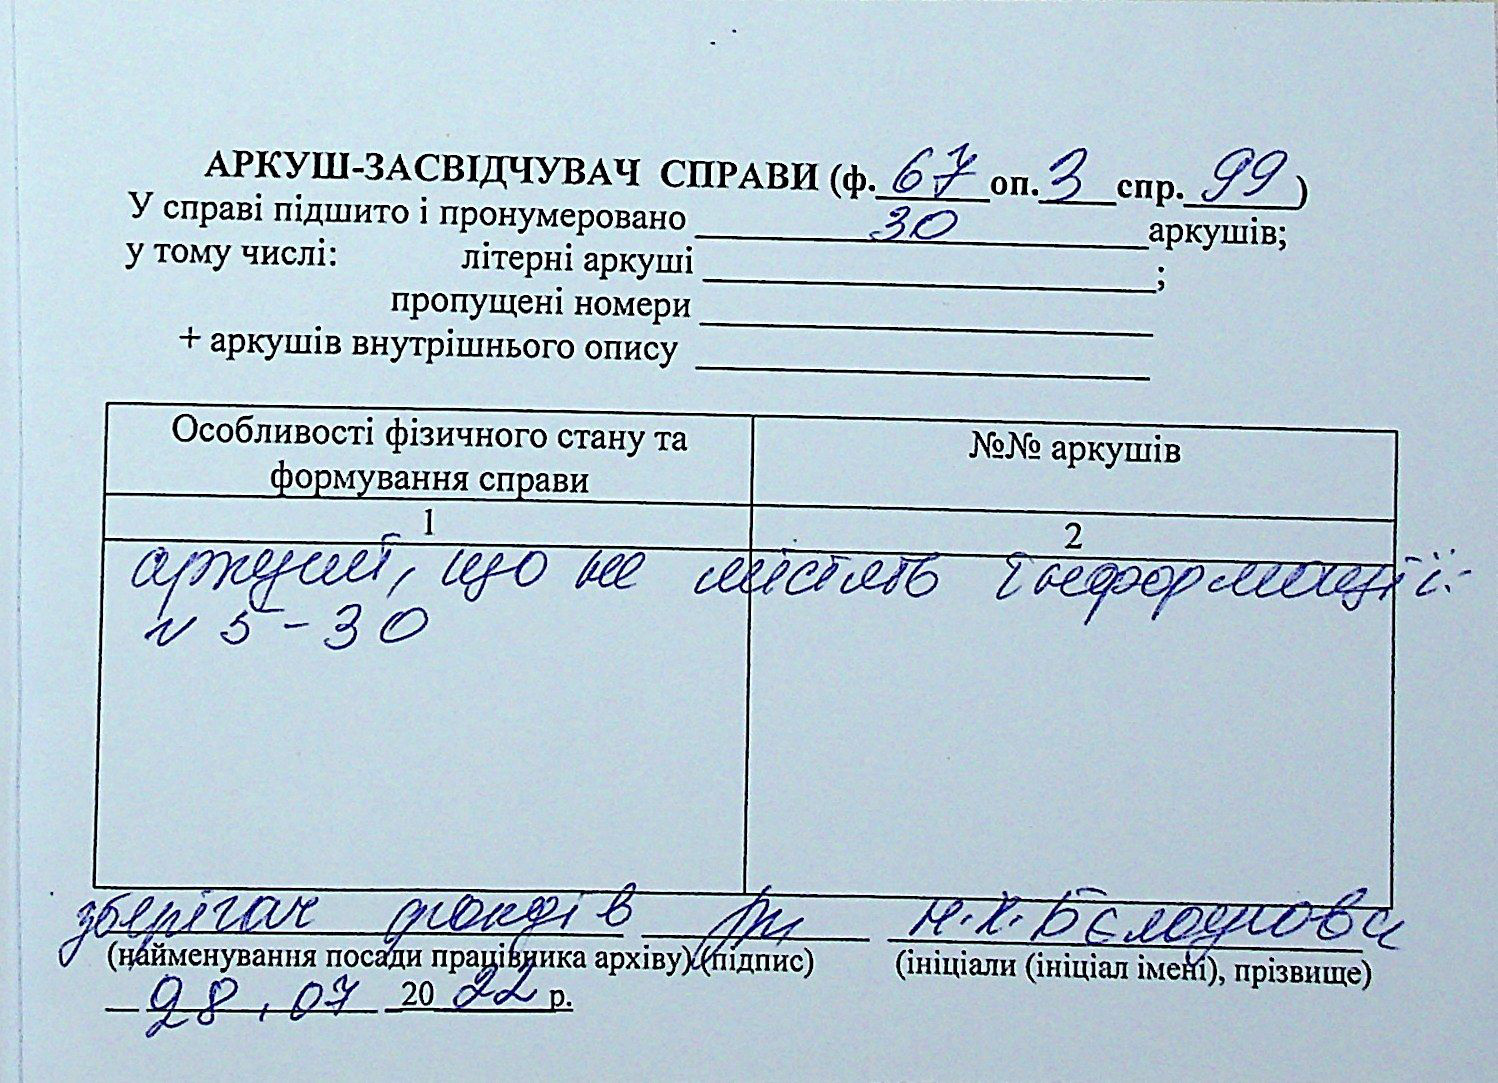 АРКУШ-ЗАСВІДЧУВАЧ СПРАВИ (ф. 67 оп. 3 спр. 99)
У справі підшито і пронумеровано 30 аркушів;
у тому числі: літерні аркуші ;
пропущені номери
+ аркушів внутрішнього опису
Особливості фізичного стану та формування справи
№№ аркушів
1
2
аркуші, що не містять інформації:
N 5-30
зберігач фондів Н.Х.
(найменування посади працівника архіву) (підпис) (ініціали (ініціал імені), прізвище)
28.07 2022 р.